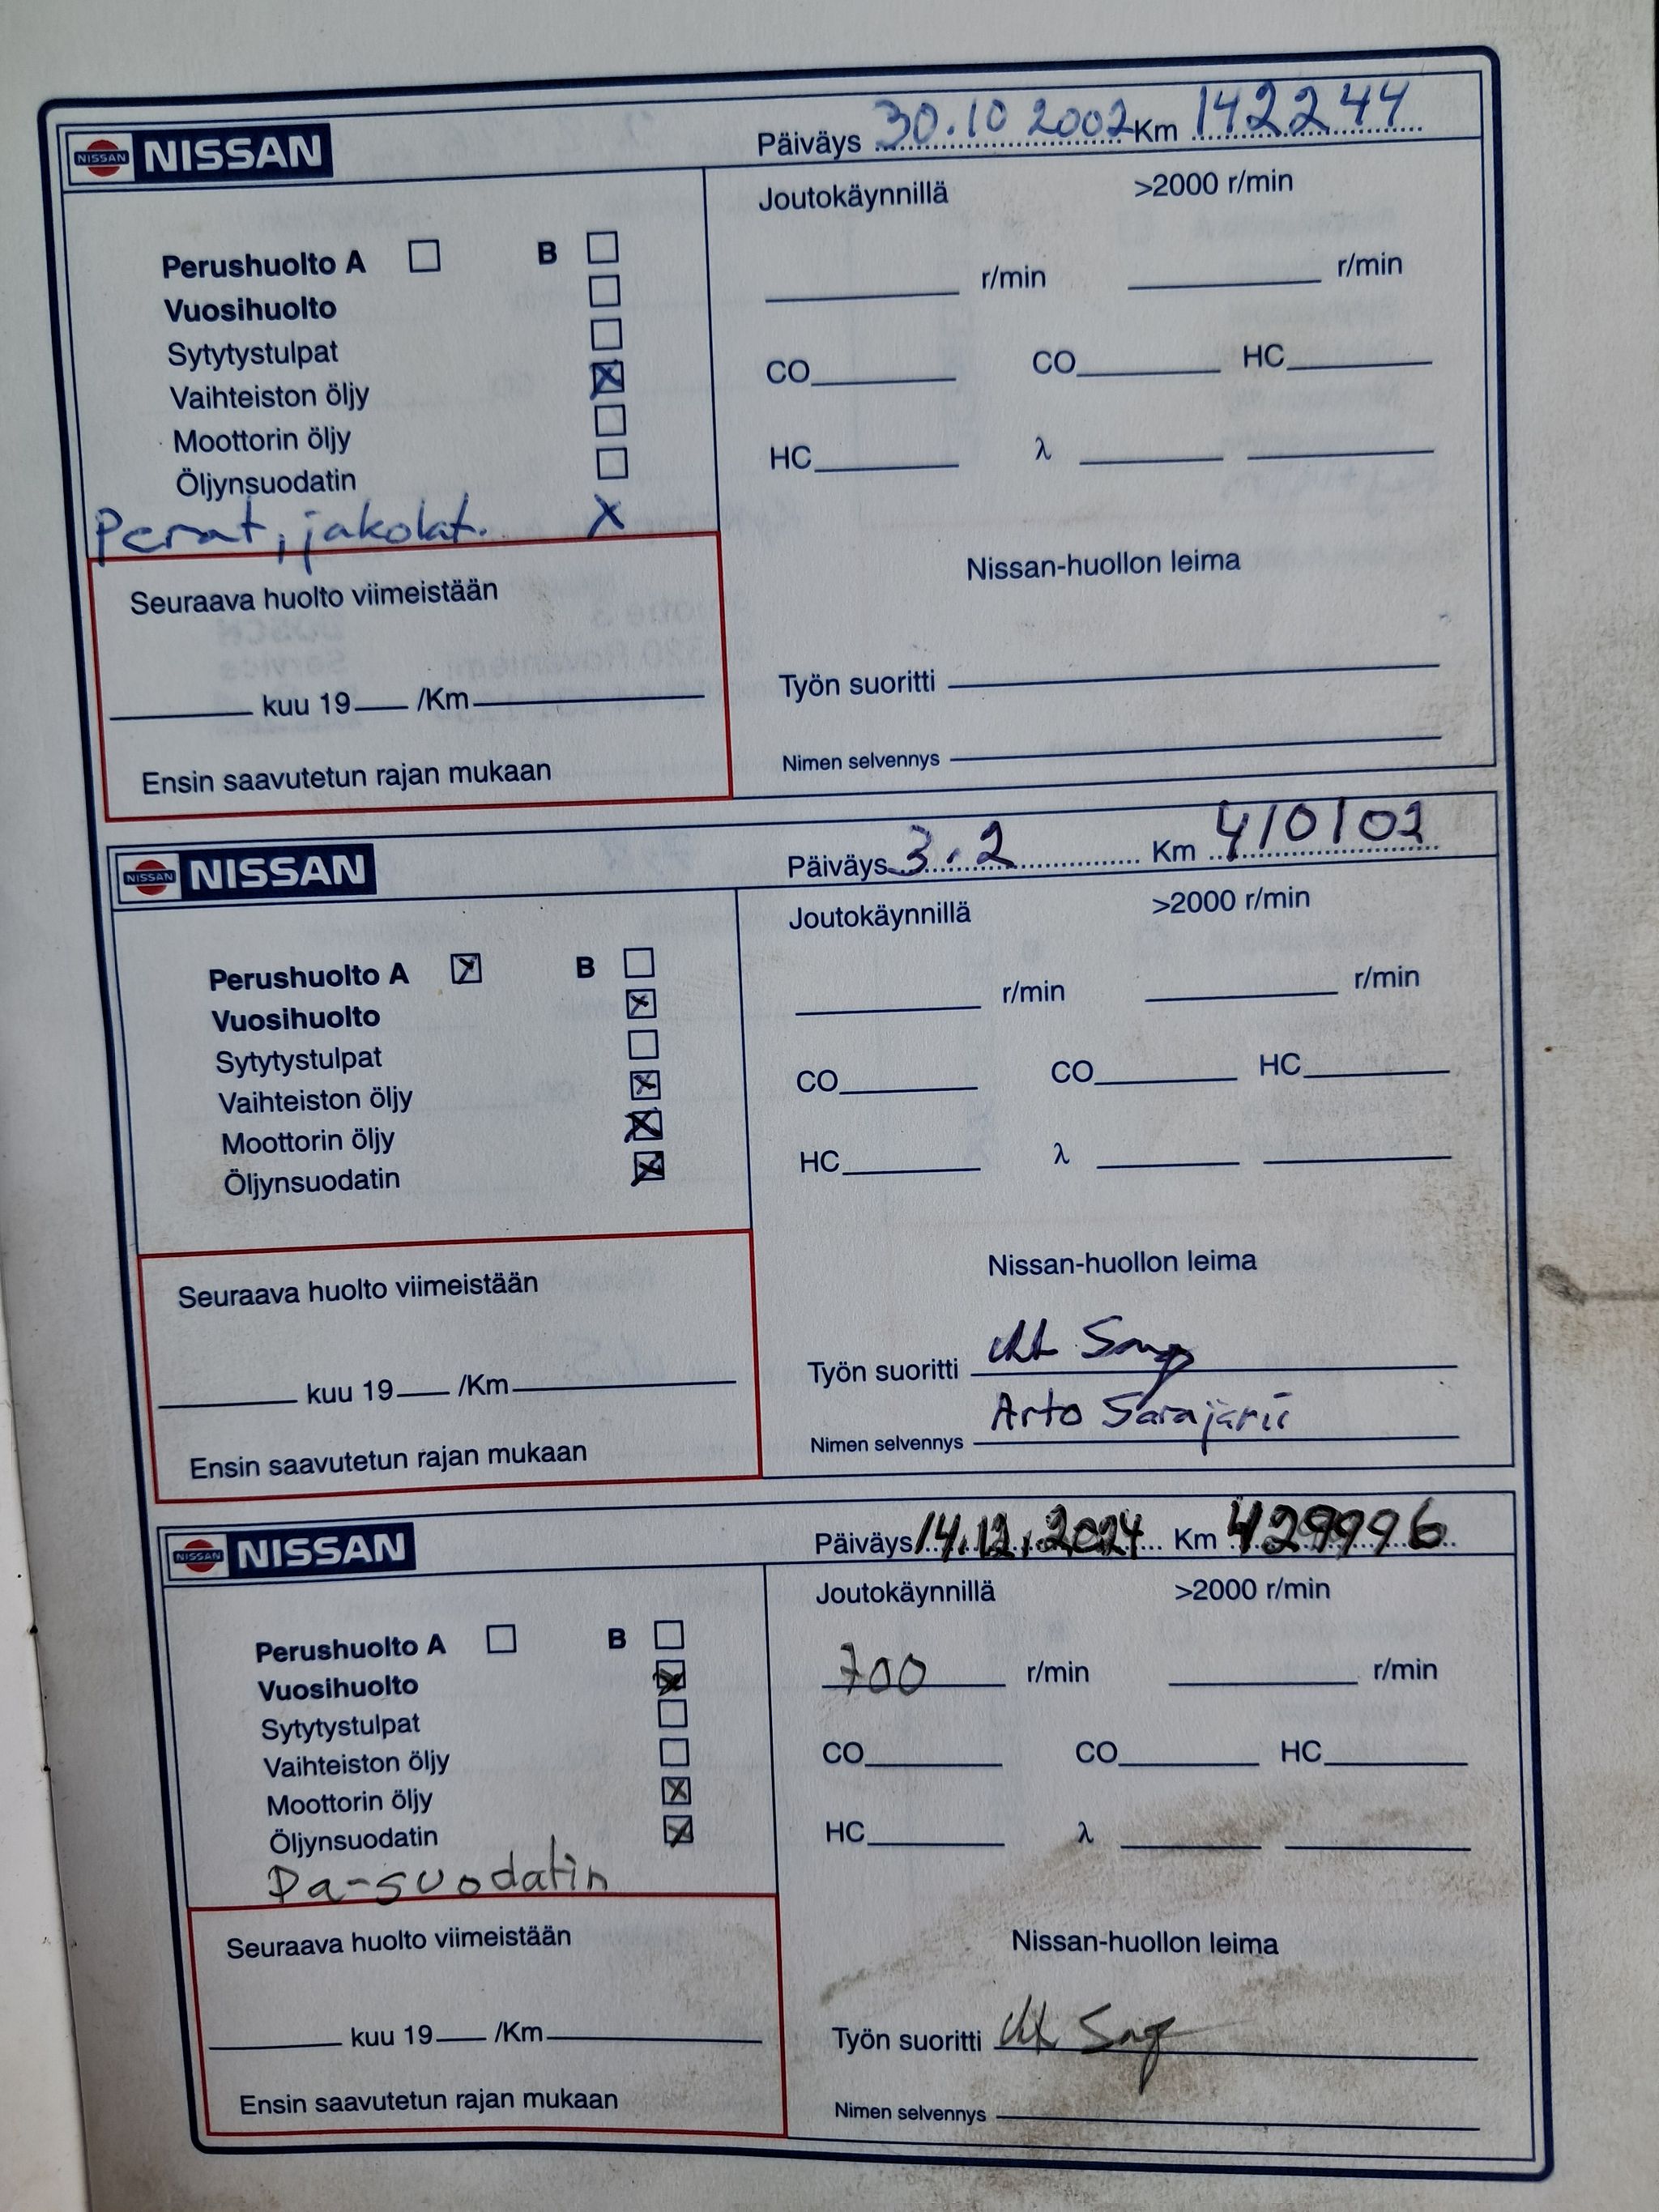 NISSAN NISSAN Päiväys 30.10 2002 Km 142244
Joutokäynnillä >2000 r/min
Perushuolto A B
Vuosihuolto
r/min r/min
Sytytystulpat
Vaihteiston öljy X
CO CO HC
Moottorin öljy
Öljynsuodatin
HC λ
Perat, jakolat. X
Nissan-huollon leima
Seuraava huolto viimeistään
Työn suoritti
kuu 19 /Km
Nimen selvennys
Ensin saavutetun rajan mukaan
NISSAN NISSAN Päiväys 3.2 Km 410102
Joutokäynnillä >2000 r/min
Perushuolto A X B
Vuosihuolto X
r/min r/min
Sytytystulpat
Vaihteiston öljy X
CO CO HC
Moottorin öljy X
Öljynsuodatin X
HC λ
Nissan-huollon leima
Seuraava huolto viimeistään
Työn suoritti
kuu 19 /Km
Arto Sarajärvi
Nimen selvennys
Ensin saavutetun rajan mukaan
NISSAN NISSAN Päiväys 14.12.2024 Km 429996
Joutokäynnillä >2000 r/min
Perushuolto A B
Vuosihuolto X
700 r/min r/min
Sytytystulpat
Vaihteiston öljy
CO CO HC
Moottorin öljy X
Öljynsuodatin X
HC λ
Pa-suodatin
Nissan-huollon leima
Seuraava huolto viimeistään
Työn suoritti
kuu 19 /Km
Nimen selvennys
Ensin saavutetun rajan mukaan